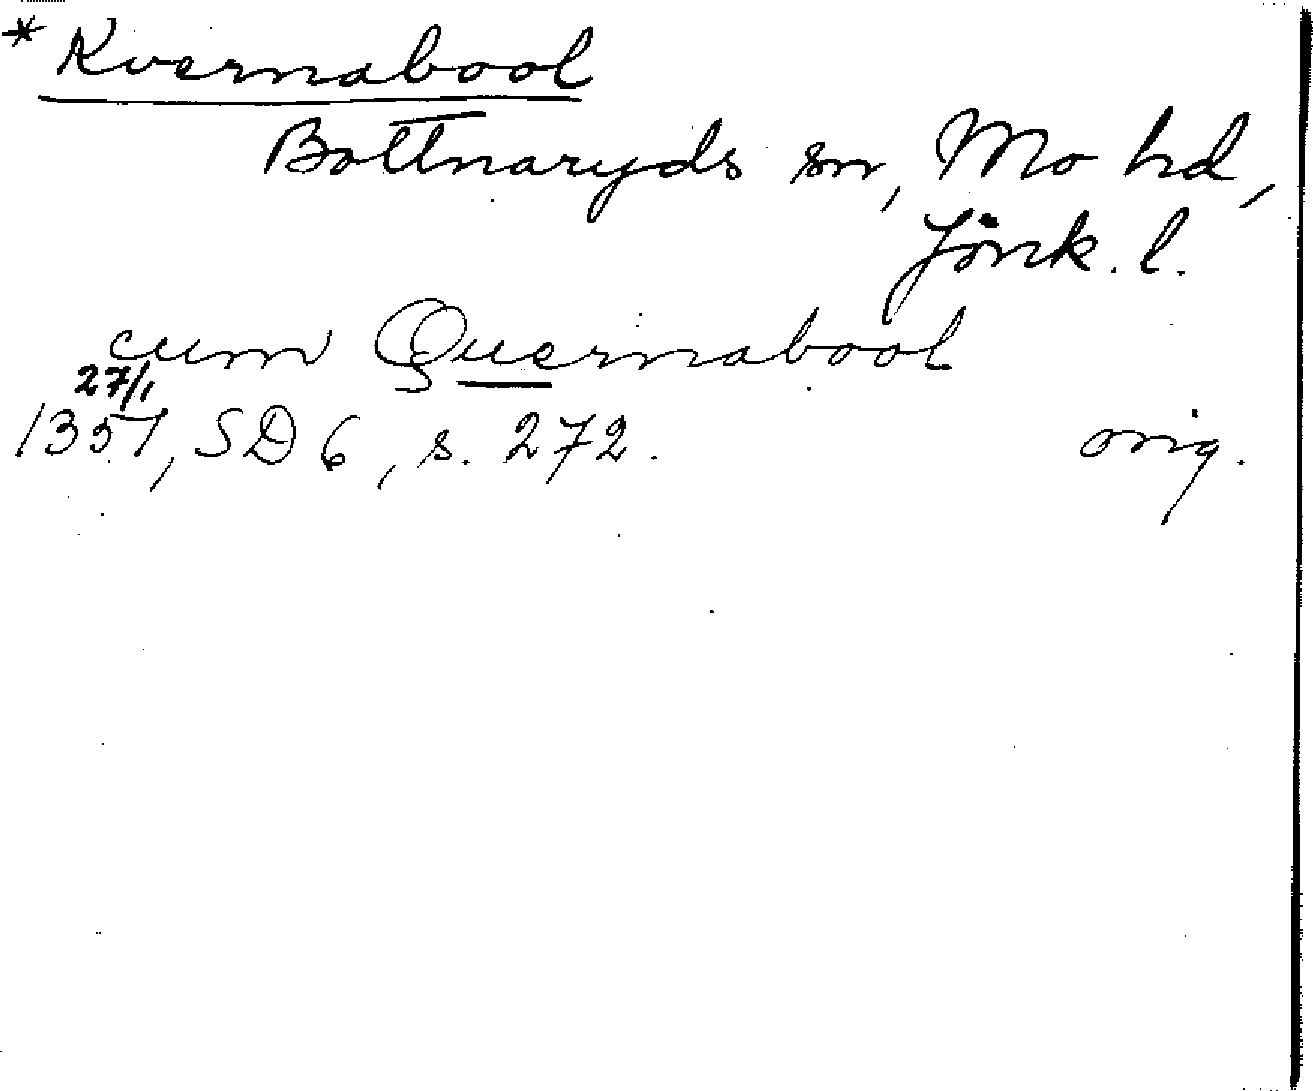 * Kvernabool
Bottnaryds sn, Mo hd,
Jönk. l.
cum Quernabool
27/1
1351, SD 6, s. 272. orig.